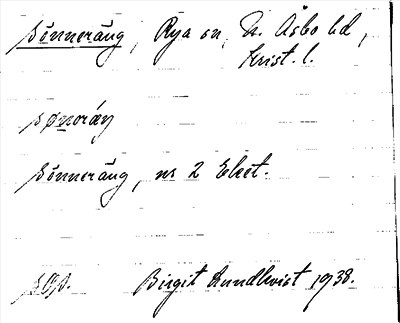 Sönneräng, Rya sn, N. Åsbo hd,
Krist. l.
sønəräŋ
Sönneräng, nr 2 Eket.
Birgit Lundkvist 1938.